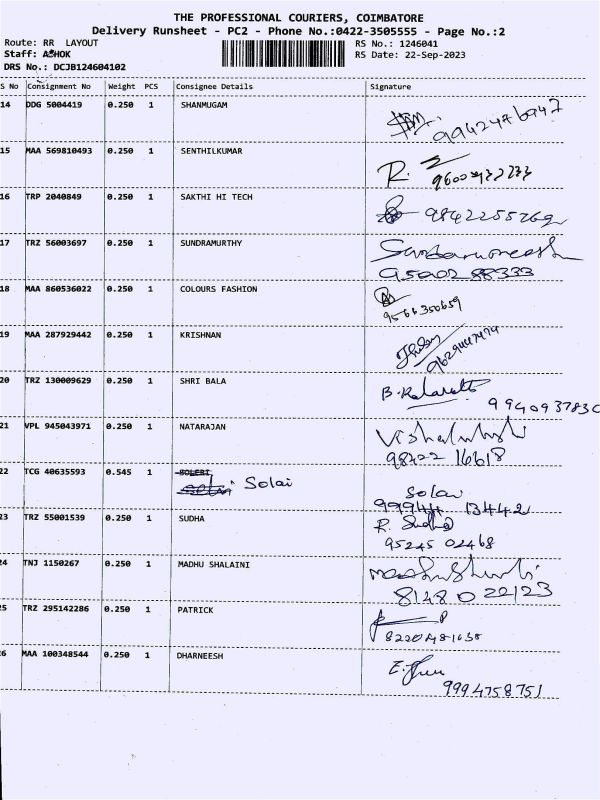 THE PROFESSIONAL COURIERS, COIMBATORE
Delivery Runsheet - PC2 - Phone No.:0422-3505555 - Page No.:2
Route: RR LAYOUT RS No.: 1246041
Staff: ASHOK RS Date: 22-Sep-2023
DRS No.: DCJB124604102
S No Consignment No Weight PCS Consignee Details Signature
14 DDG 5004419 0.250 1 SHANMUGAM
9942476947
15 MAA 569810493 0.250 1 SENTHILKUMAR
R.
16 TRP 2040849 0.250 1 SAKTHI HI TECH
17 TRZ 56003697 0.250 1 SUNDRAMURTHY
95902 88333
18 MAA 860536022 0.250 1 COLOURS FASHION
9566350659
19 MAA 287929442 0.250 1 KRISHNAN
20 TRZ 130009629 0.250 1 SHRI BALA
994093783
21 VPL 945043971 0.250 1 NATARAJAN
98422 16618
22 TCG 40635593 0.545 1 Solai
Solai
99944 13442
23 TRZ 55001539 0.250 1 SUDHA
R. Sudha
95245 02468
24 TNJ 1150267 0.250 1 MADHU SHALAINI
8148022123
25 TRZ 295142286 0.250 1 PATRICK
26 MAA 100348544 0.250 1 DHARNEESH
9994758751